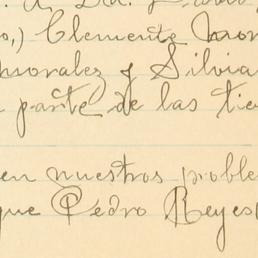 o,) Clemente Mor
morales y Silvia
parte de las tie
en nuestros proble
que Pedro Reyes